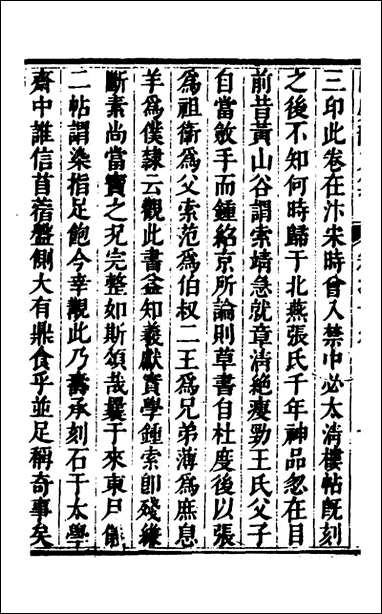 三印此卷在汴宋時曾入禁中必太清樓帖旣刻
之後不知何時歸于北燕張氏千年神品忽在目
前昔黃山谷謂索靖急就章清絶瘦勁王氏父子
自當斂手而鍾紹京所論則草書自杜度後以張
為祖衛為父索范為伯叔二王為兄弟薄為庶息
羊為僕隷云觀此書益知羲獻實學鍾索卽殘縑
斷素尚當寶之况完整如斯頌哉曩于來東尸
二帖謂染指足飽今幸觀此乃壽承刻石于太學
齋中誰信苜蓿盤側大有鼎食乎並足稱奇事矣